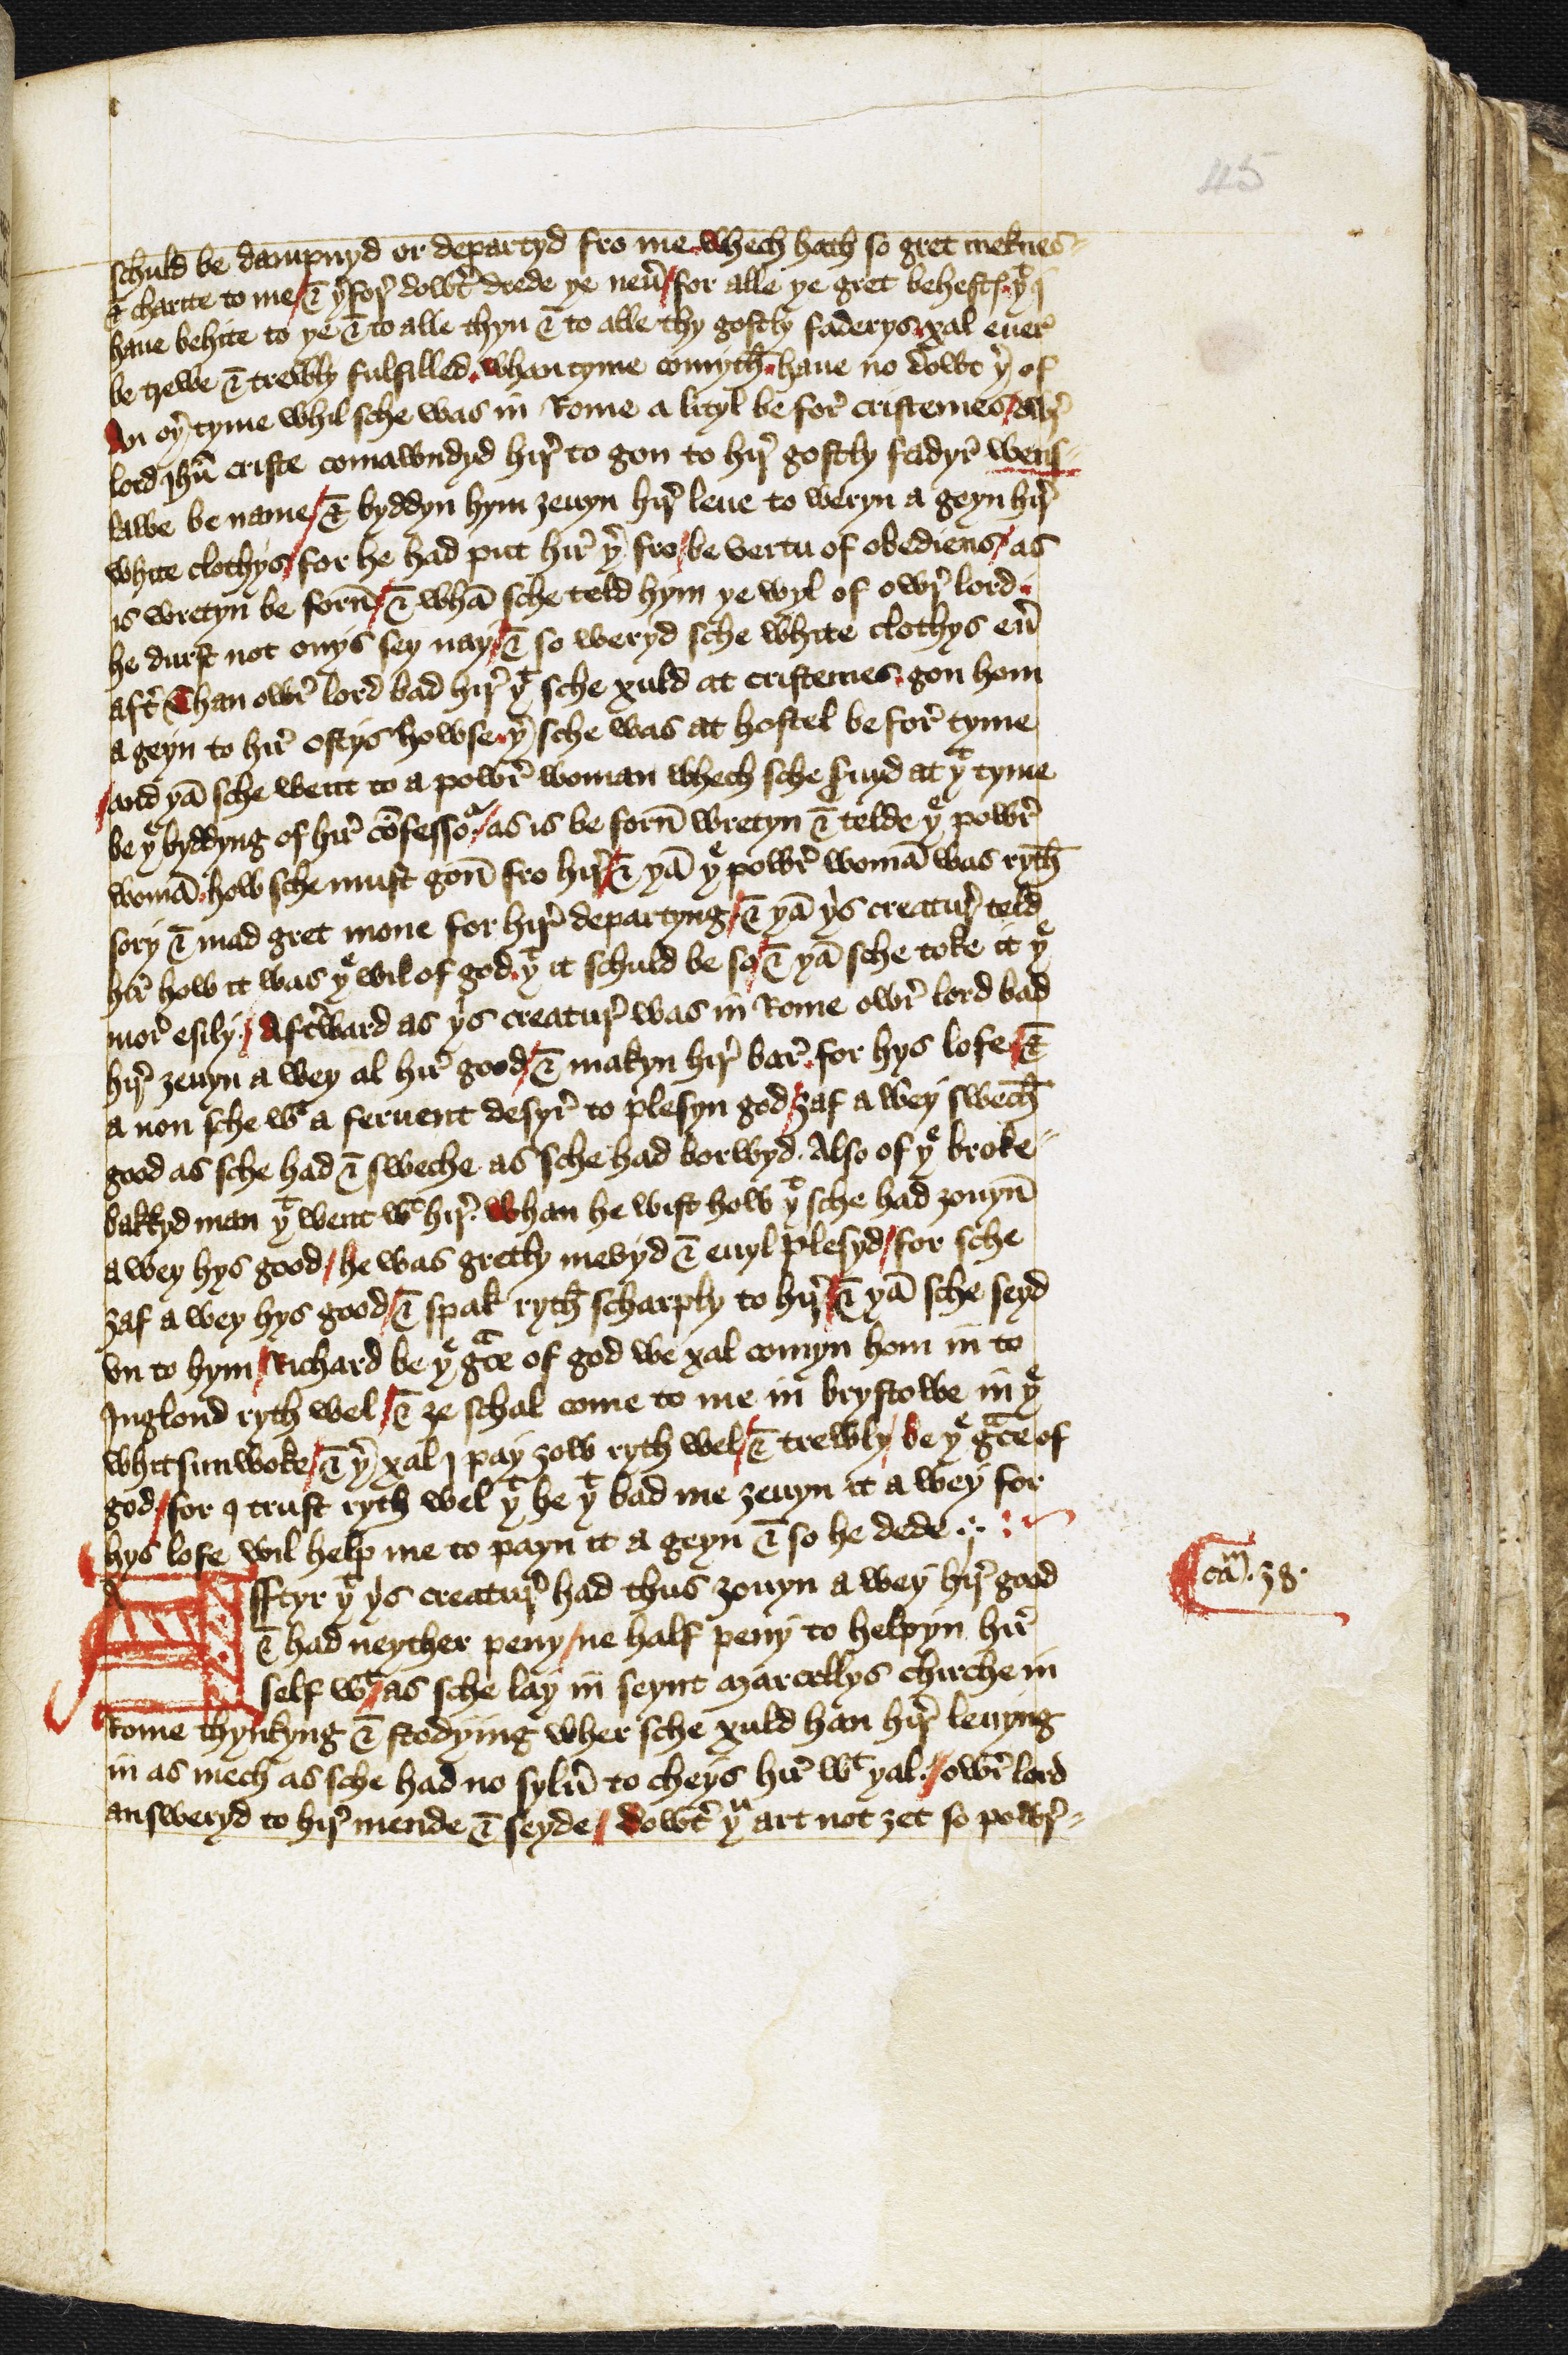 45
schuld be dampnyd or departyd fro me whech hath so gret meknes
& charite to me / & yͬfor dowtͬ drede ye neuͬ / for alle ye gret behestꝭ yͭ I
haue behite to ye & to alle thyn & to alle thy gostly faderys xal euer
be trewe & trewly fulfilled. whan tyme comyth. haue no dowt yͬ of
An oyͬ tyme whil sche was in Rome a lityl be forͬ cristemes / owrͬ
lord Jhū criste comawndyd hirͬ to gon to hirͬ gostly fadyrͬ wens
lawe be name / & byddyn hym ȝeuyn hirͬ leue to weryn a geyn hirͬ
white clothys / for he had put hirͬ yͬ fro / be vertu of obediens / as
is wretyn be forn̄ / & whā sche teld hym ye wyl of owrͬ lord.
he durst not onys sey nay / & so weryd sche white clothys euͬ
aftͬ Than owrͬ lord bad hirͬ yͭ sche xuld at cristemes. gon hom
a geyn to hirͬ ostys howse. yͬ sche was at hostel be forͬ tyme
/ and yā sche went to a powrͬ woman whech sche seruyd at yͭ tyme
be yͤ byddyng of hirͬ cōfessoͬ. / as is be forn̄ wretyn & telde yͤ powrͬ
womā. how sche must gon̄ fro hirͬ / & yā yͤ powrͬ womā was ryth
sory & mad gret mone for hirͬ departyng / & yā yˢ creaturͬ teld
hirͬ how it was yͤ wil of god. yͭ it schuld be so / & yā sche toke it yͤ
morͬ esily. / Aftͬward as yˢ creaturͬ was in Rome owrͬ lord bad
hirͬ ȝeuyn a wey al hirͬ good / & makyn hirͬ barͬ. for hys lofe / &
a non sche wͭ a feruent desyrͬ to plesyn god / ȝaf a wey swech
good as sche had & sweche as sche had borwyd. Also of yͤ broke
bakkyd man yͭ went wͭ hirͬ. whan he wist how yͭ sche had ȝouyn̄
a wey hys good / he was gretly mevyd & euyl plesyd / for sche
ȝaf a wey hys good / & spak ryth scharply to hirͬ / & yā sche seyd
vn to hym / Richard be yͤ gͣce of god we xal comyn hom in to
Inglond ryth wel / & ȝe schal come to me in brystowe in yͤ
whitsunwoke / & yͬ xal I pay ȝow ryth wel / & trewly / be yͤ gͣce of
god / for I trust ryth wel yͭ he yͭ bad me ȝeuyn it a wey for
hys lofe wil help me to payn it a geyn & so he dede
Afftyr yͭ yˢ creaturͬ had thus ȝouyn a wey hirͬ good
& had neyther peny / ne half peny to helpyn hirͬ
self wͭ / as sche lay in seynt Marcellys chirche in
Rome thynkyng & stodying wher sche xuld han hirͬ leuyng
in as mech as sche had no syluͬ to cheys hirͬ wͭ yal. / owrͬ lord
answeryd to hirͬ mende & seyde / dowtͬ yͧ art not ȝet so powrͬ
caͫ. 38.